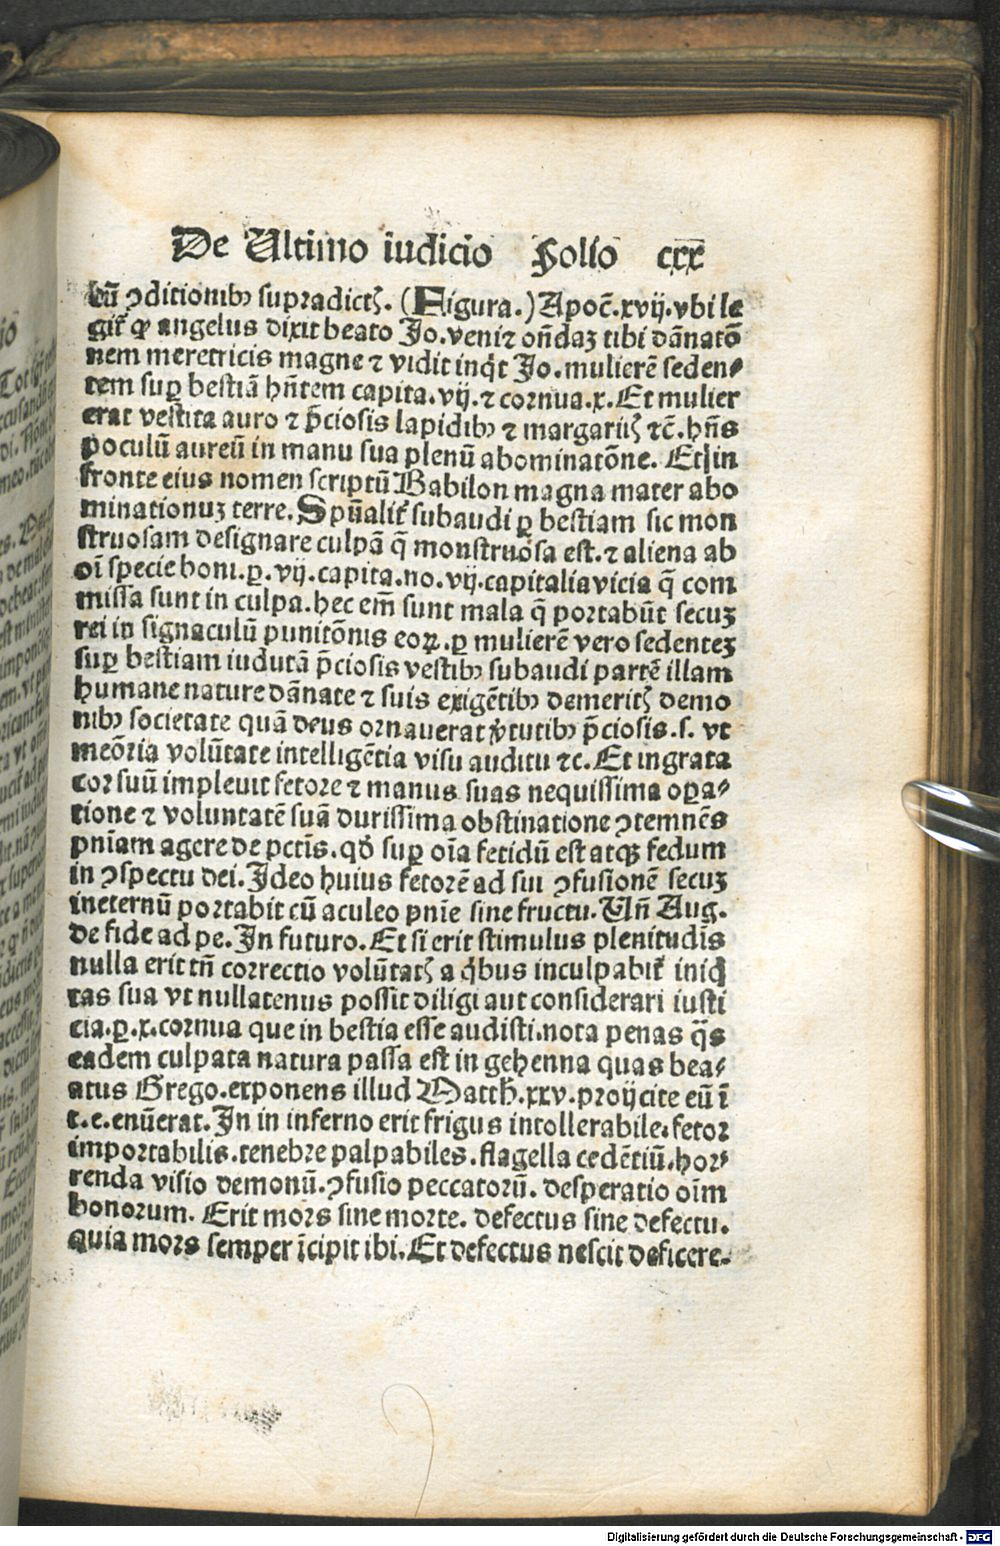 De Ultimo iudicio Folio cxx
cū ꝯditionibꝫ supradictꝭ. (Figura.) Apoc̄.xvij.vbi le
git᷑ ꝙ angelus dixit beato Jo.veni ⁊ on̄daꝫ tibi dānatō
nem meretricis magne ⁊ vidit inq̇t Jo.mulierē seden⸗
tem suꝑ bestiā hn̄tem capita.vij.⁊ cornua.x.Et mulier
erat vestita auro ⁊ p̄ciosis lapidibꝫ ⁊ margaritꝭ ⁊c̄.hn̄s
poculū aureū in manu sua plenū abominatōne. Et in
fronte eius nomen scriptū Babilon magna mater abo
minationuꝫ terre.Spūalit᷑ subaudi ꝑ bestiam sic mon
struosam designare culpā q̄ monstruosa est.⁊ aliena ab
oī specie boni.ꝑ.vij.capita.no.vij.capitalia vicia q̄ com
missa sunt in culpa.hec em̄ sunt mala q̄ portabūt secuꝫ
rei in signaculū punitōnis eoꝝ.ꝑ mulierē vero sedenteꝫ
suꝑ bestiam indutā p̄ciosis vestibꝫ subaudi partē illam
humane nature dānate ⁊ suis exigētibꝫ demeritꝭ demo
nibꝫ societate quā deus ornauerat v̓tutibꝫ p̄ciosis.s. vt
meōria volūtate intelligētia visu auditu ⁊c. Et ingrata
cor suū impleuit fetore ⁊ manus suas nequissima oꝑa⸗
tione ⁊ voluntatē suā durissima obstinatione ꝯtemnēs
pn̄iam agere de pctīs.qd̄ suꝑ oīa fetidū est atqꝫ fedum
in ꝯspectu dei. Ideo huius fetorē ad sui ꝯfusionē secuꝫ
ineternū portabit cū aculeo pnīe sine fructu. Vn̄ Aug.
de fide ad pe. In futuro. Et si erit stimulus plenitudīs
nulla erit tn̄ correctio volūtatꝭ a q̇bus inculpabit᷑ iniq̇
tas sua vt nullatenus possit diligi aut considerari iusti
cia.ꝑ.x.cornua que in bestia esse audisti.nota penas q̄s
eadem culpata natura passa est in gehenna quas bea⸗
atus Grego.exponens illud Matth̄.xxv.proijcite eū ī
t.e.enūerat. In in inferno erit frigus intollerabile.fetor
importabilis.tenebre palpabiles.flagella cedētiū.hor⸗
renda visio demonū.ꝯfusio peccatorū. desperatio oīm
bonorum. Erit mors sine morte. defectus sine defectu.
quia mors semper īcipit ibi. Et defectus nescit deficere.
Digitalisierung gefördert durch die Deutsche Forschungsgemeinschaft - DFG